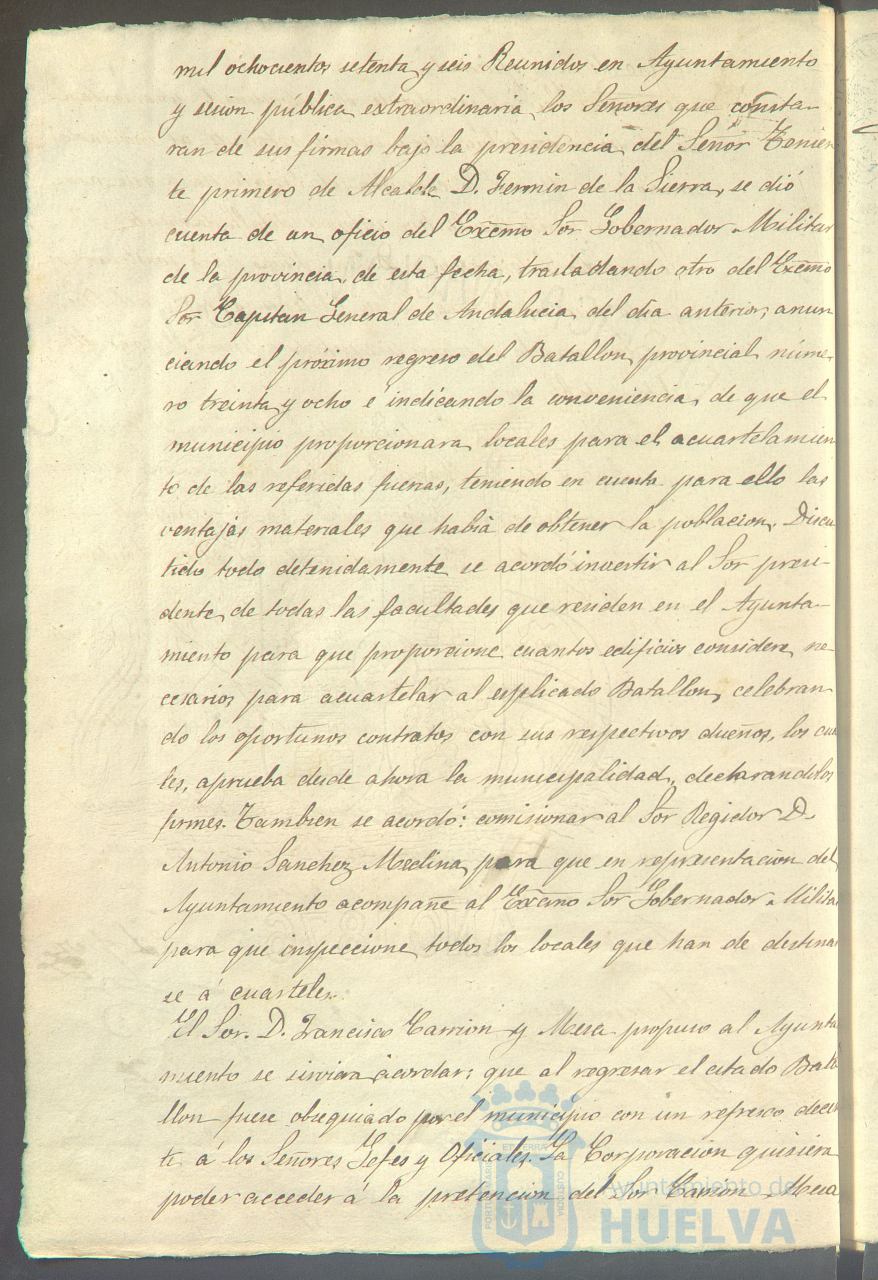 mil ochocientos setenta y seis Reunidos en Ayuntamiento
y sesion pública extraordinaria los Señores que consta-
ran de sus firmas bajo la presidencia del Señor Tenien
te primero de Alcalde D. Fermin de la Sierra, se dió
cuenta de un oficio del Excmo Sor Gobernador Militar
de la provincia, de esta fecha, trasladando otro del Excmo
Sor Capitan General de Andalucia, del dia anterior, anun
ciando el próximo regreso del Batallon provincial núme-
ro treinta y ocho é indicando la conveniencia, de que el
municipio proporcionara locales para el acuartelamien
to de las referidas fuerzas, teniendo en cuenta para ello las
ventajas materiales que habia de obtener la poblacion. Discu
tido todo detenidamente se acordó investir al Sor presi-
dente, de todas las facultades que residen en el Ayunta-
miento para que proporcione cuantos edificios considere ne-
cesarios para acuartelar al esplicado Batallon, celebran-
do los oportunos contratos con sus respectivos dueños, los cua
les, aprueba desde ahora la municipalidad, declarandolos
firmes. Tambien se acordó: comisionar al Sor Regidor D.
Antonio Sanchez Medina, para que en representacion del
Ayuntamiento acompañe al Excmo Sor Gobernador Milita
para que inspeccione todos los locales que han de destinar
se á cuarteles.
El Sor. D. Francisco Carrion y Mesa propuso al Ayunta
miento se sirviera acordar; que al regresar el citado Bata
llon fuese obsequiado por el municipio con un refresco decen
te á los Señores Gefes y Oficiales. La Corporacion quisiera
poder acceder á la pretencion del Sor Carrion Mesa
Ayuntamiento de
HUELVA